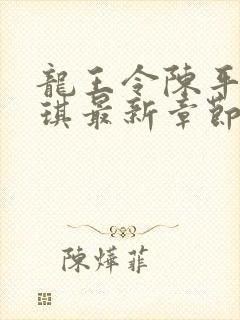 龍王令陳平
琪最新章節
陳燁菲